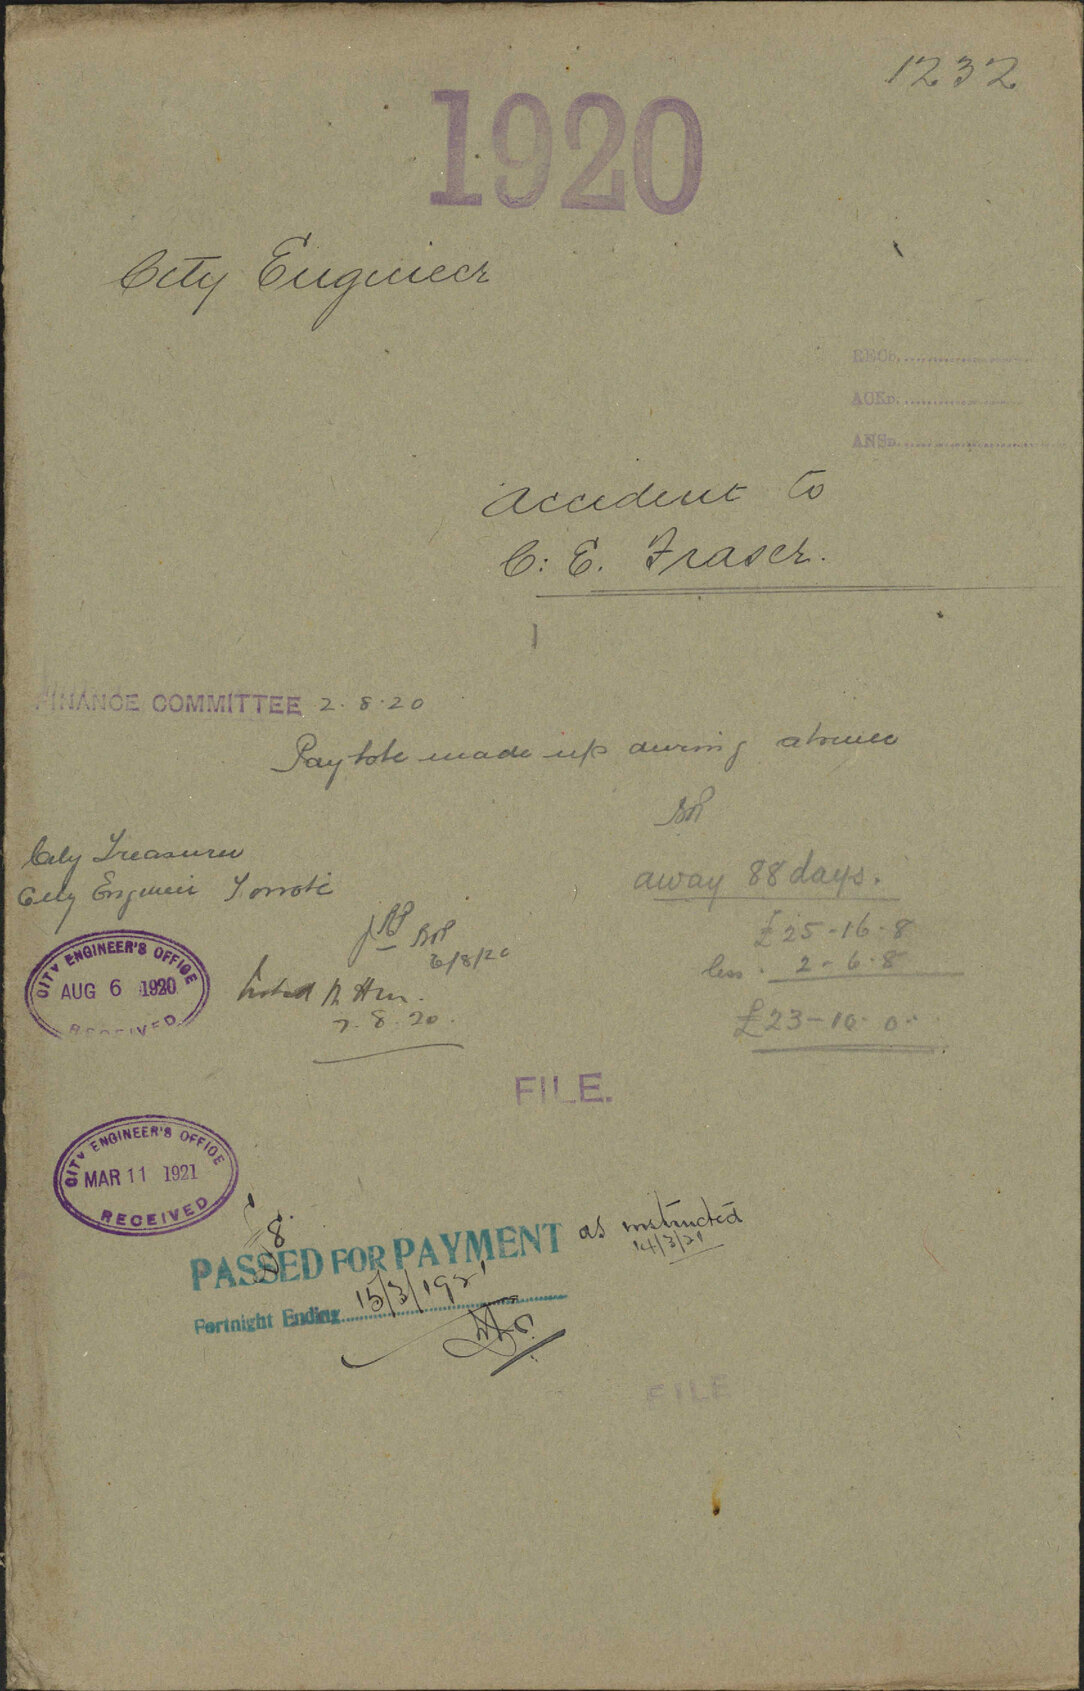 1232
1920
City Engineer
RECD.
ACKD.
ANSD.
Accident to
C. E. Fraser.
FINANCE COMMITTEE 2.8.20
Pay to be made up during absence
City Treasurer
City Engineer to note
away 88 days.
£25-16-8
less. 2-6-8
£23-10-0
6/8/20
CITY ENGINEER'S OFFICE
AUG 6 1920
RECEIVED
Noted
7.8.20.
FILE.
CITY ENGINEER'S OFFICE
MAR 11 1921
RECEIVED
PASSED FOR PAYMENT as instructed
14/3/21
Fortnight Ending 15/3/1921
FILE